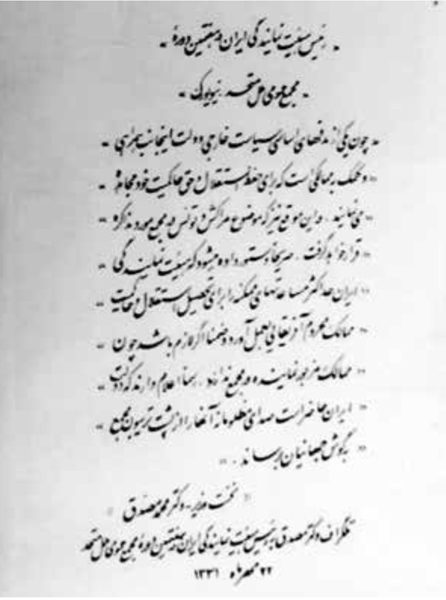 « رئیس هیئت نمایندگی ایران در هفتمین دورهٔ »
« مجمع عمومی ملل متحد. نیویورک »
« چون یکی از هدفهای اساسی سیاست خارجی دولت اینجانب همراهی »
« و کمک به ممالکی است که برای حفظ استقلال و حق حاکیت خود مجاهده »
« می نمایند. و این موقع نیز که موضوع مراکش و تونس در مجمع مورد مذاکره »
« قرار خواهد گرفت. صریحاً دستور داده میشود که هیئت نمایندگی »
« ایران حداکثر مساعدتهای ممکنه را برای تحصیل استقلال و حاکمیت »
« ممالک محروم آفریقائی بعمل آورد و ضمناً اگر لازم باشد چون »
« ممالک مزبور نماینده در مجمع ندارند. رسماً اعلام دارند که دولت »
« ایران حاضر است صدای مظلومانه آنها را از پشت تریبون مجمع »
« بگوش جهانیان برساند. »
« نخست وزیر - دکتر محمد مصدق »
تلگراف دکتر مصدق به رئیس هیئت نمایندگی ایران در هفتمین دورهٔ مجمع عمومی ملل متحد
۲۲ مهرماه ۱۳۳۱